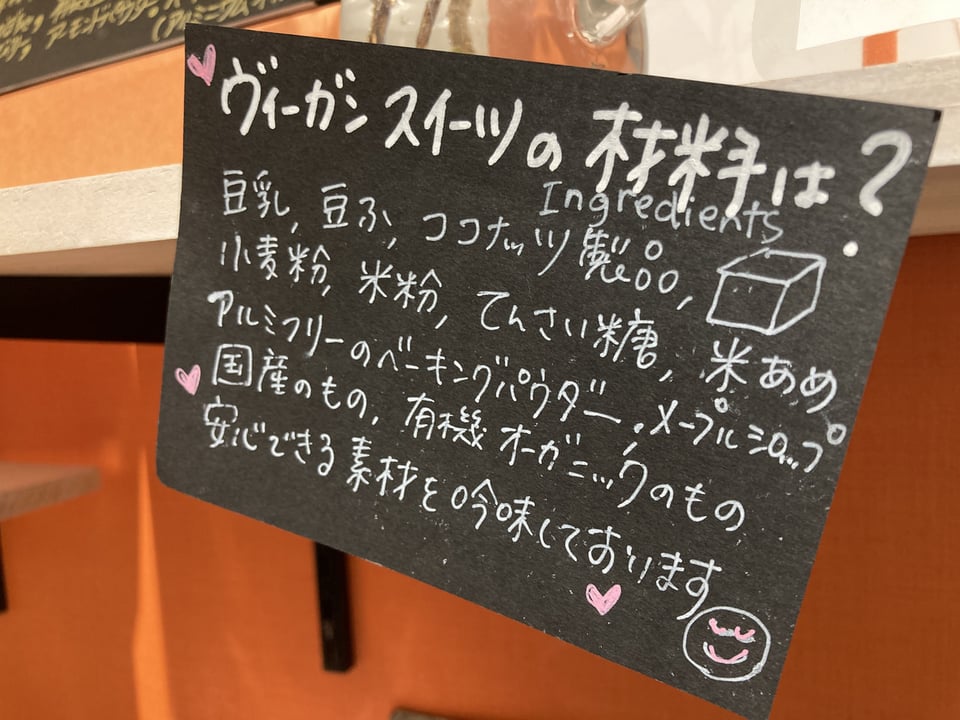 ヴィーガンスイーツの材料は?
Ingredients
豆乳, 豆ふ, ココナッツ製品,
小麦粉, 米粉, てんさい糖, 米あめ
アルミフリーのベーキングパウダー, メープルシロップ
国産のもの, 有機オーガニックのもの
安心できる素材を吟味しております